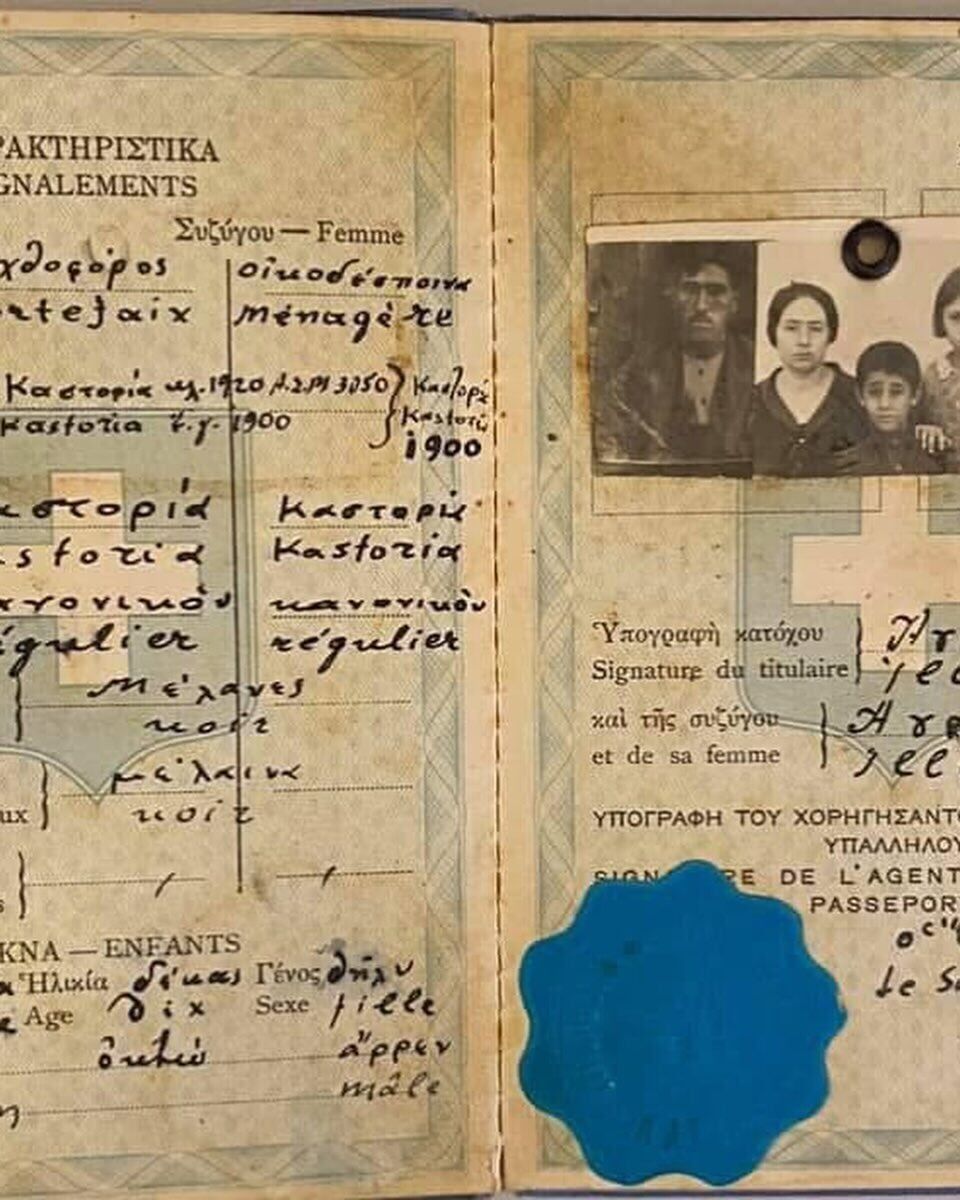 ΡΑΚΤΗΡΙΣΤΙΚΑ
GNALEMENTS
Συζύγου — Femme
χθοφόρος οἰκοδέσποινα
rtefaix ménagère
Καστορία κλ. 1920 Α.Σ.Μ 3050 Καστορία
Kastoria τ.γ. 1900 Kastoria
1900
αστορία Καστορία
astoria Kastoria
ανονικὸν κανονικὸν
égulier régulier
Μέλανες
noir
μέλαινα
ux noir
ΚΝΑ — ENFANTS
Ἡλικία δέκα Γένος θῆλυ
Age dix Sexe fille
ὀκτώ ἄρρεν
mâle
Ὑπογραφὴ κατόχου Ἀγ
Signature du titulaire ille
καὶ τῆς συζύγου Ἀγρ
et de sa femme ill
ΥΠΟΓΡΑΦΗ ΤΟΥ ΧΟΡΗΓΗΣΑΝΤΟ
ΥΠΑΛΛΗΛΟΥ
SIGN RE DE L'AGENT
PASSEPOR
Le S